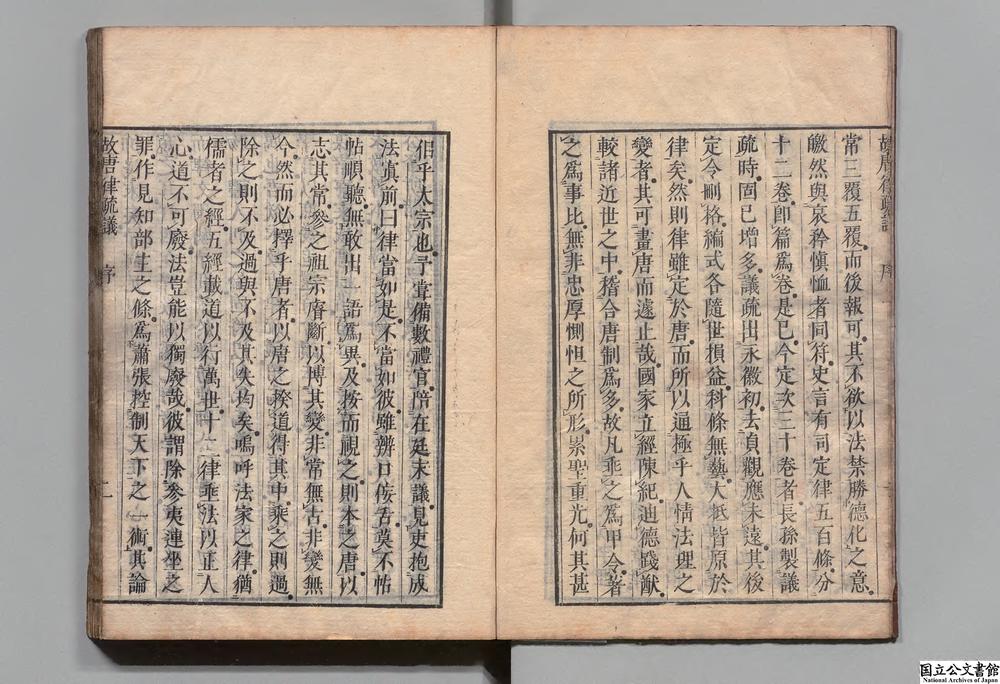 常三覆五覆而後報可其不欲以法禁勝德化之意
皦然與哀矜慎恤者同符史言有司定律五百條分
十二卷卽篇爲卷是已今定次三十卷者長孫製議
疏時固已增多議疏出永徽初去貞觀應未遠其後
定令刪格編式各隨世損益科條無藝大抵皆原於
律矣然則律雖定於唐而所以通極乎人情法理之
變者其可畫唐而遽止哉國家立經陳紀迪德踐猷
較諸近世之中稽合唐制爲多故凡乘之爲甲令著
之爲事比無非忠厚惻怛之所形累聖重光何其甚
佀乎太宗也予甞備數禮官陪在廷末議見吏抱成
法寘前曰律當如是不當如彼雖辨口佞舌莫不帖
帖順聽無敢出一語爲異及按而視之則本之唐以
志其常參之祖宗睿斷以博其變非常無古非變無
今然而必擇乎唐者以唐之揆道得其中乘之則過
除之則不及過與不及其失均矣嗚呼法家之律猶
儒者之經五經載道以行萬世十二律乘法以正人
心道不可廢法豈能以獨廢哉彼謂除參夷連坐之
罪作見知部主之條爲蕭張控制天下之一術其論
故唐律疏議
序
二
国立公文書館
National Archives of Japan